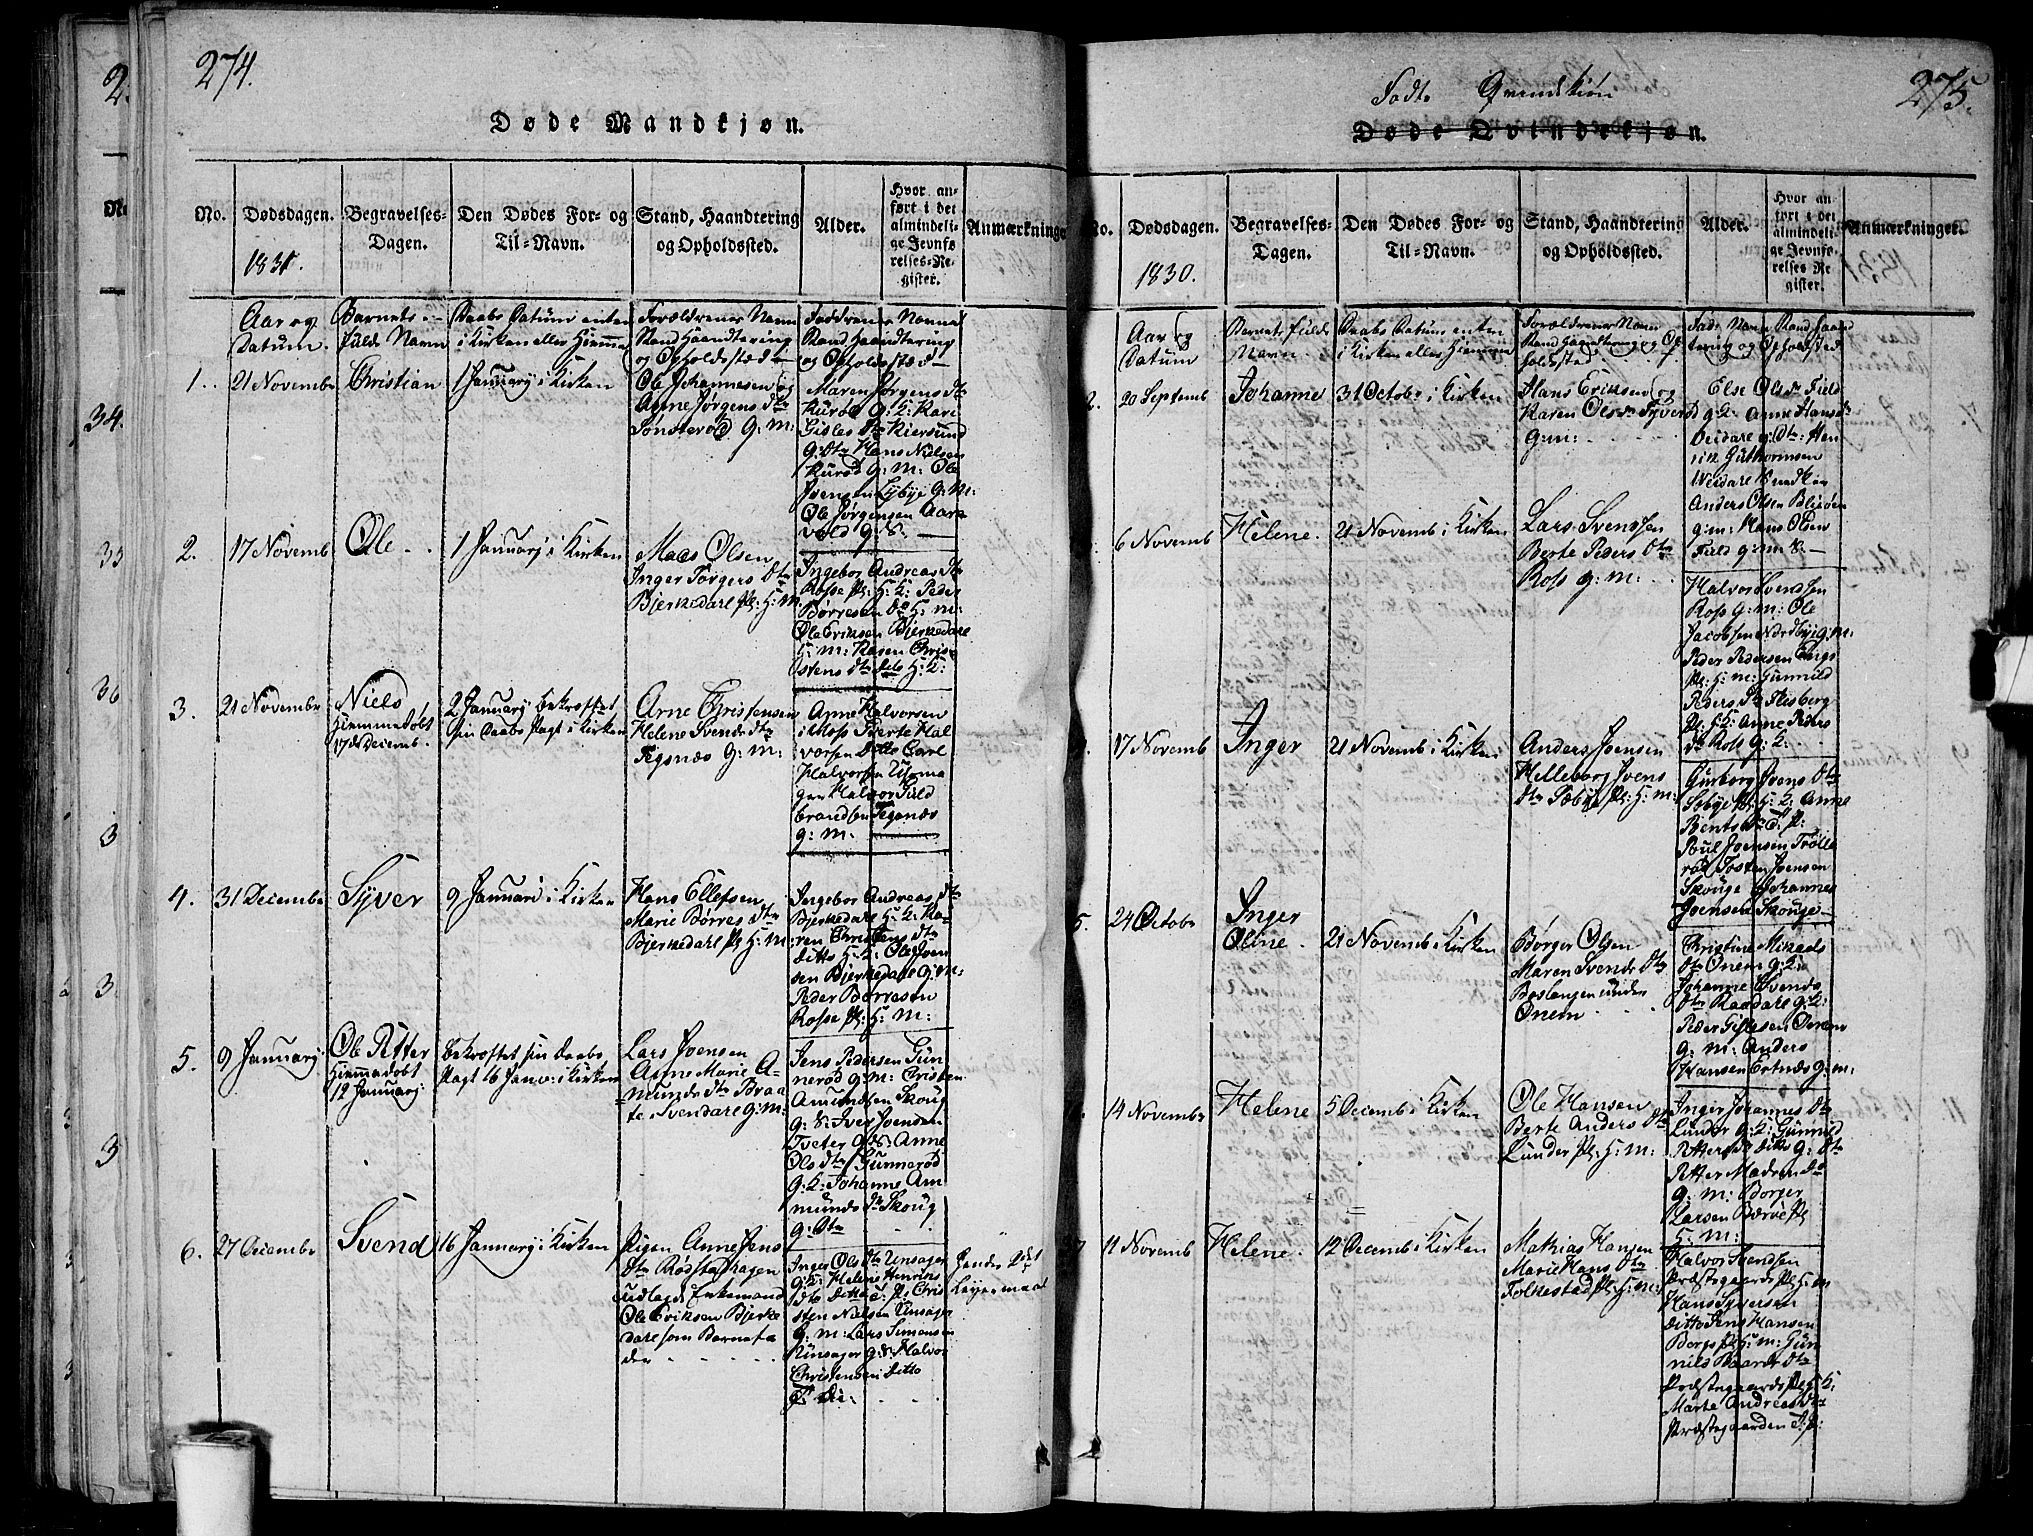 274.
Døde Mandkjøn.
No.
Dødsdagen.
1831.
Begravelses-
Dagen.
Den Dødes For- og
Til-Navn.
Stand, Haandtering
og Opholdssted.
Alder.
Hvor an-
ført i det
almindeli-
ge Jevnfø-
relses-Re-
gister.
Anmærkninger
Aar og
Datum.
Barnets
fulde Navn
Daabs Datum enten
i Kirken eller Hiemme
Forældrenes Navn
Stand Haandtering
og Opholdssted
Faddrenes Navne
Stand Haandtering
og Opholdssted
1.
21 Novembr
Christian
1 Januarj i Kirken
Ole Johannesen og
Anne Jørgens Dtr
Sonsterød g: m:
Maren Jørgens Dtr
Kurød g: K: Kari
Gisles Dtr Kiersund
g: Dtr Hans Nielsen
Kurød g: m: Ole
Joensen Lybye g: m:
Ole Jørgensen Aare
vold g: S.
2.
17 Novemb
Ole
1 Januarj i Kirken
Maas Olsen
Inger Torgers Dtr
Bjerkedarl Pl: H: M:
Ingebor Andreas Dtr
Rosse Pl: H: K: Peder
Børresen Do H: m:
Ole Eriksen Bjerkedarl
H: m: Karen Chri
stens Dtr dito H: K:
3.
21 Novembr
Niels
Hiemmedøbt
17de Decemb.
2 Januarj bekræftet
sin Daabs Pagt i Kirken
Arne Christensen
Helene Svends Dtr
Tegnæs g: m:
Anne Halvorsen
i Moss Berte Hal
vorsen Ditto Carl
Halvorsen
Halvor
Tegenæs
g: m:
4.
31 Decembr
Syver
9 Januari i Kirken
Hans Ellefsen
Marie Børres Dtr
Bjerkedarl Pl H: M:
Ingebor Andreas Dtr
Bjerkedarl H: K: Ka
ren Christens Dtr
ditto H: K: Ole Joen
sen Bjerkedarl g: m:
Peder Børresen
Rosse Pl: H: M:
5.
9 Januarj
Ole Petter
Hiemmedøbt
12 Januarj:
bekræftet sin Daabs
Pagt 16 Janv: i Kirken
Lars Joensen
Anne Marie A-
munds Dtr Braa
te i Svendarl g: m:
Jens Pedersen Gun
nerød g: m: Christen
Amundsen Skoug
g: S: Iver Joensen
Tveter g: S: Anne
Ols Dtr Gunnerød
g: K: Johanne Am
munds Dtr Skoug
g: Dtr
6.
27 Decembr
Svend
16 Januarj i Kirken
Pigen Anne Jens
Dtr Rodsta Hagen
udlagde Enkemand
Ole Eriksen Bjerke
darl som Barnefa
der
Inger Ols Dtr Unsager
g: K: Helene Henrics
Dtr Ditto P: Chris
ten Nielsen Unsager
g: m: Lars Simensen
Unsager g: S: Halvor
Christensen Ditto
Leyermaal
275.
Fødte Qvindekiøn
Døde Qvindekjøn.
No.
Dødsdagen.
1830.
Begravelses-
Dagen.
Den Dødes For- og
Til-Navn.
Stand, Haandtering
og Opholdssted.
Alder.
Hvor an-
ført i det
almindeli-
ge Jevnfø-
relses Re-
gister.
Anmærkninger.
Aar og
Datum
Barnets fulde
Navn
Daabs Datum enten
i Kirken eller Hiemme
Forældrenes Navn
Stand Haandtering og Op
holdssted
Fad: Navn Stand Haand
tering og Opholdssted
2.
20 Septemb
Johanne
31 Octobr i Kirken
Hans Eriksen og
Karen Ols Dtr Tyverød
g: m:
Else Ols Dtr Field
g: K: Anne Hans Dtr
g: Dtr: Hen
rik Guthormsen
Anders Olsen
g: m: Hans Olsen
Field g: m: S:
6 Novemb
Helene
21 Novemb i Kirken
Lars Svenssen
Berte Peders Dtr
Ross g: m:
Halvor Svendsen
Ross g: m: Ole
Jacobsen Nordbye g: m:
Peder Pedersen Engs
Pl: H: m: Gunnild
Peders Dtr Flesberg
Pl: H: K: Anne Peders
Dtr Ross g: K:
17 Novemb
Inger
21 Novemb i Kirken
Anders Joensen
Helleborg Joens
Dtr Sæbye Pl: H: m:
Gurborg Joens Dtr
Sebye Pl: H: K: Anne
Bents Dtr
Poul Joensen Trolle
rød Tosten Joensen
Skouge Johannes
Joensen Skouge
5.
24 Octobr
Inger
Oline
21 Novemb i Kirken
Børger Olsen
Maren Svends Dtr
Boslangen under
Onem
Christine Mikaels
Dtr Onem g: K:
Johanne Svends
Dtr Raadarl g: K:
Peder Gislesen Onem
g: m: Anders
Hansen Ertnæs g: m:
14 Novembr
Helene
5 Decemb i Kirken
Ole Hansen
Berte Anders Dtr
Lunder Pl: H: m:
Inger Johannes Dtr
Lunder g: K: Gunnild
Petters Dtr ditto g: Dtr
Petter Madsen do
g: m: Borger
Larsen Børve Pl
H: m:
11 Novemb
Helene
12 Decemb i Kirken
Mathias Hansen
Marie Hans Dtr
Folkestad Pl: H: m:
Halvor Svendsen
Præstegaards Pl: H: m
Hans Syversen
ditto Jens Hansen
Borgs Pl: H: m: Gun
nild Baards Dtr
Præstegaards Pl: H: K:
Marte Andreas Dtr
Præstegaarden P: